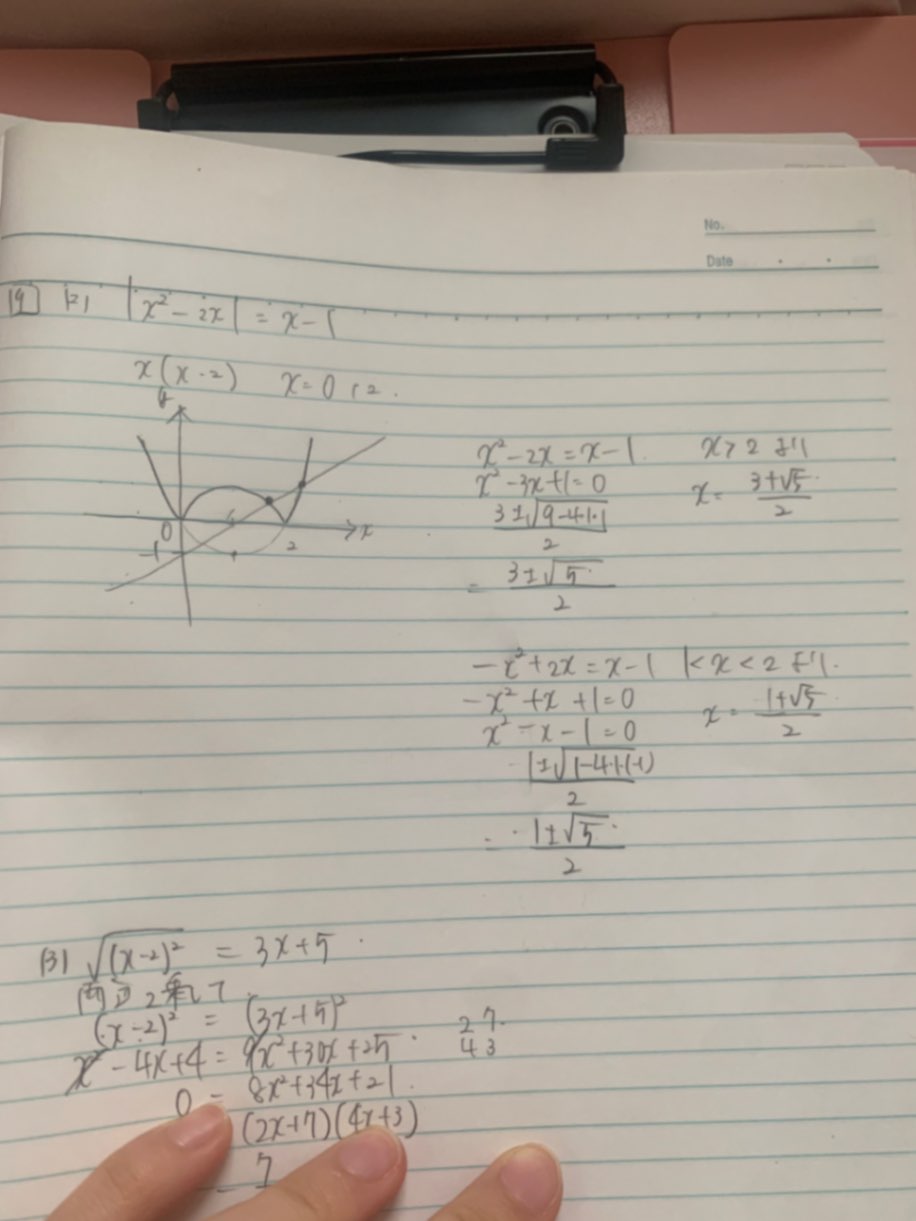 No.
Date
19 (2) |x² - 2x| = x - 1
x(x-2) x = 0, 2.
y
0
-1
2
x
x² - 2x = x - 1 x > 2 より
x² - 3x + 1 = 0 x = (3+√5)/2
(3±√(9-4·1·1))/2
= (3±√5)/2
-x² + 2x = x - 1 1 < x < 2 より.
-x² + x + 1 = 0 x = (1+√5)/2
x² - x - 1 = 0
(1±√(1-4·1·(-1)))/2
= (1±√5)/2
(3) √(x-2)² = 3x + 5
両辺2乗して
(x-2)² = (3x+5)²
x² - 4x + 4 = 9x² + 30x + 25
2 7
4 3
0 = 8x² + 34x + 21
(2x+7)(4x+3)
7